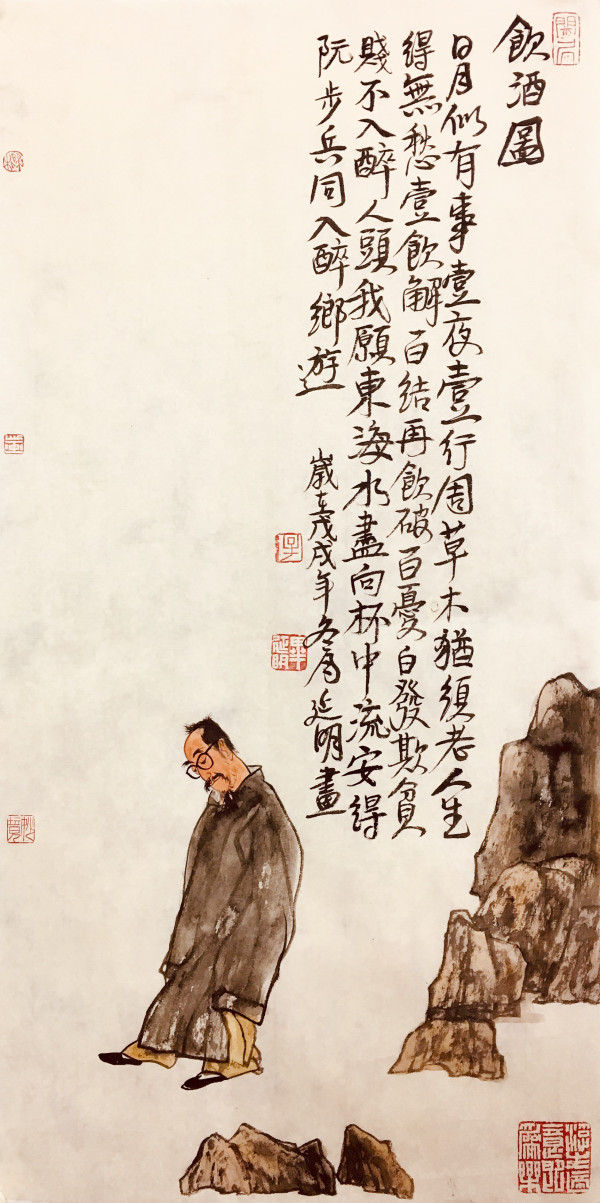 飲酒圖
日月似有事壹夜壹行周草木猶須老人生
得無愁壹飲解百結再飲破百憂白發欺貧
賤不入醉人頭我願東海水盡向杯中流安得
阮步兵同入醉鄉遊
歲在戊戌年冬月延明畫
畢延明